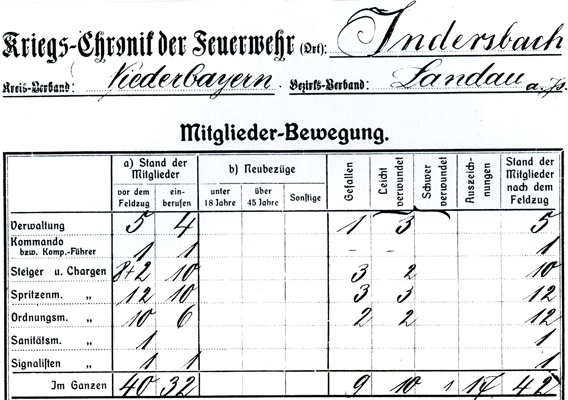 Kriegs-Chronik der Feuerwehr (Ort): Indersbach
Kreis-Verband: Niederbayern Bezirks-Verband: Landau a. Is.
Mitglieder-Bewegung.
a) Stand der Mitglieder b) Neubezüge Gefallen Leicht verwundet Schwer verwundet Auszeichnungen Stand der Mitglieder nach dem Feldzug
vor dem Feldzug einberufen unter 18 Jahre über 45 Jahre Sonstige
Verwaltung 5 4 1 3 5
Kommando bzw. Komp.-Führer 1 1 – – 1
Steiger u. Chargen 8+2 10 3 2 10
Spritzenm. „ 12 10 3 3 12
Ordnungsm. „ 10 6 2 2 12
Sanitätsm. „ 1 1
Signalisten „ 1 1 1
Im Ganzen 40 32 9 10 1 42